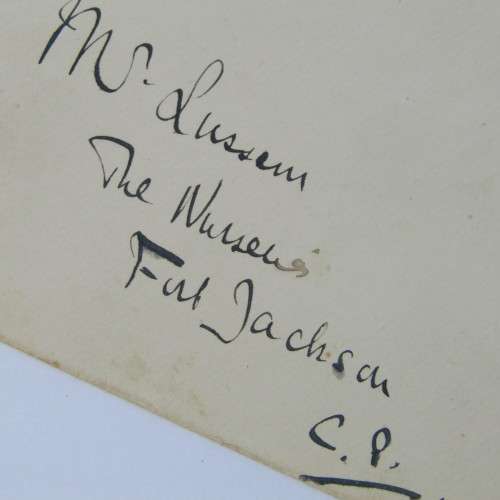 Mr. Lussem
The Nurseries
Fort Jackson
C. P.